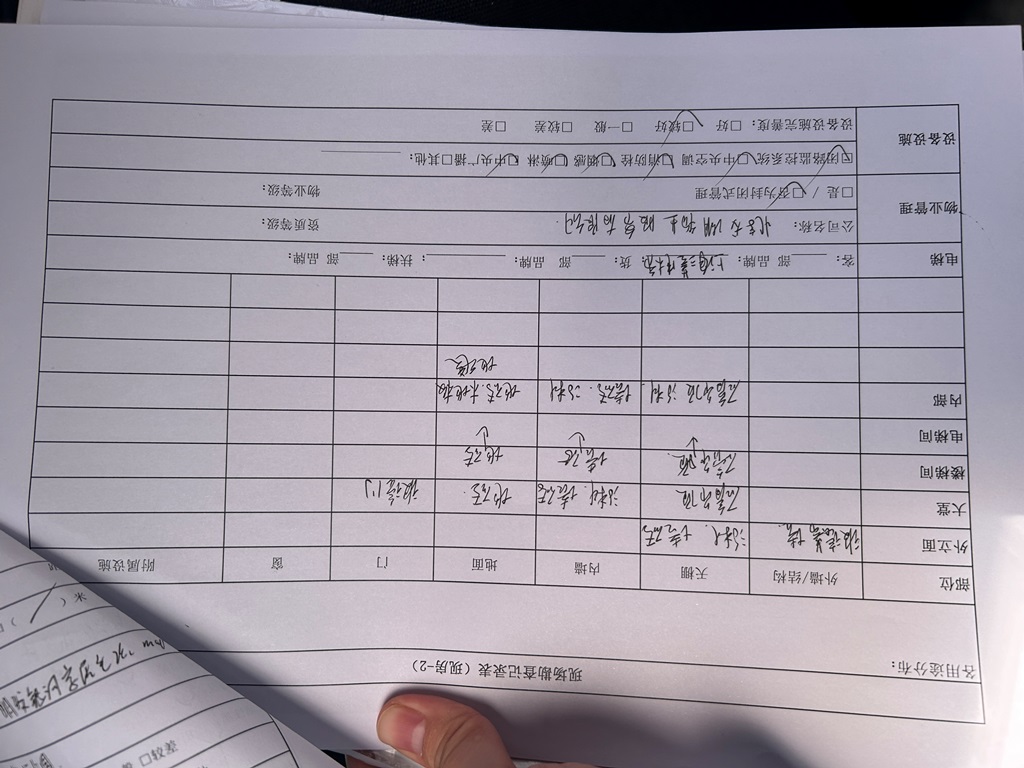 现场勘查记录表（现房-2）
各用途分布：
部位 外墙/结构 天棚 内墙 地面 门 窗 附属设施
外立面 玻璃幕墙 涂料、墙砖
大堂 石膏吊顶 涂料、墙砖 地砖 玻璃门
楼梯间 石膏吊顶 墙砖 地砖
电梯间 ↓ ↓ ↓
内部 石膏吊顶 涂料 墙砖、涂料 地砖、木地板
地毯
电梯 客： 部 品牌： 上海三菱 货： 部 品牌： ： 扶梯： 部 品牌：
物业管理 公司名称： 物业服务有限公司 资质等级：
□是 / □否为封闭式管理 物业等级：
设备设施 □闭路监控系统 □中央空调 □消防栓 □烟感 □喷淋 □中央广播 □其他：
设备设施完善度： □好 □较好 □一般 □较差 □差
）米
□较差